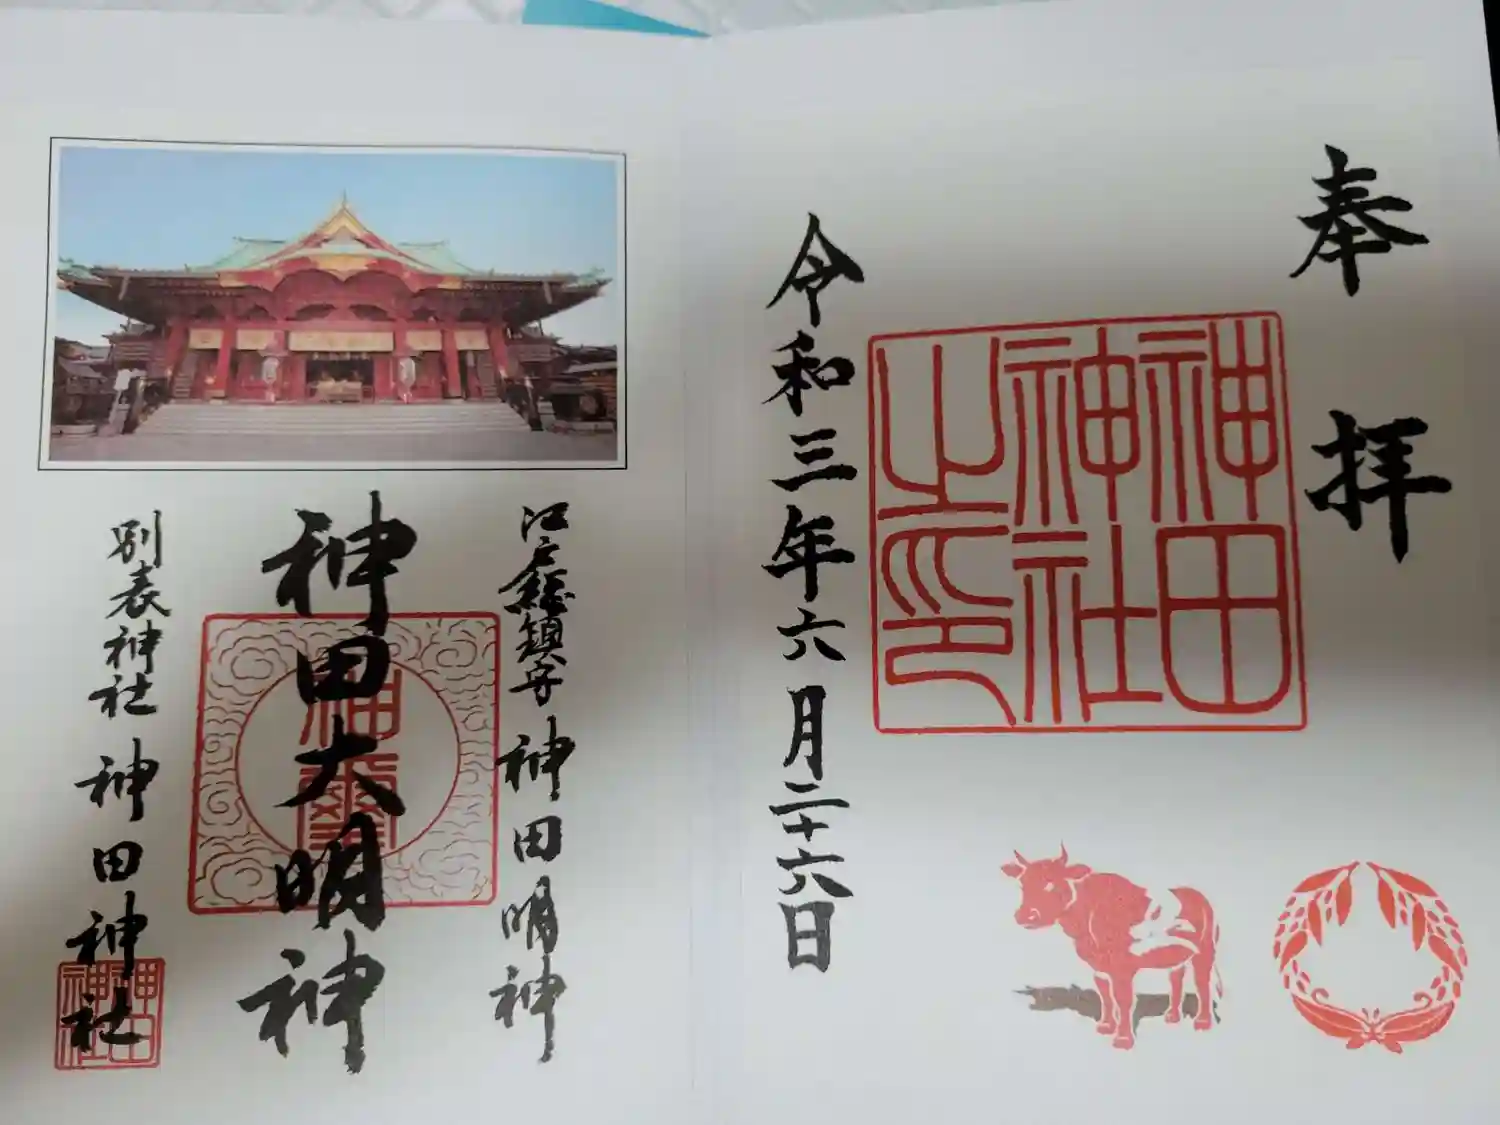 奉拝
神田神社之印
令和三年六月二十六日
江戸総鎮守 神田明神
神田大明神
神璽
別表神社 神田神社
神田神社